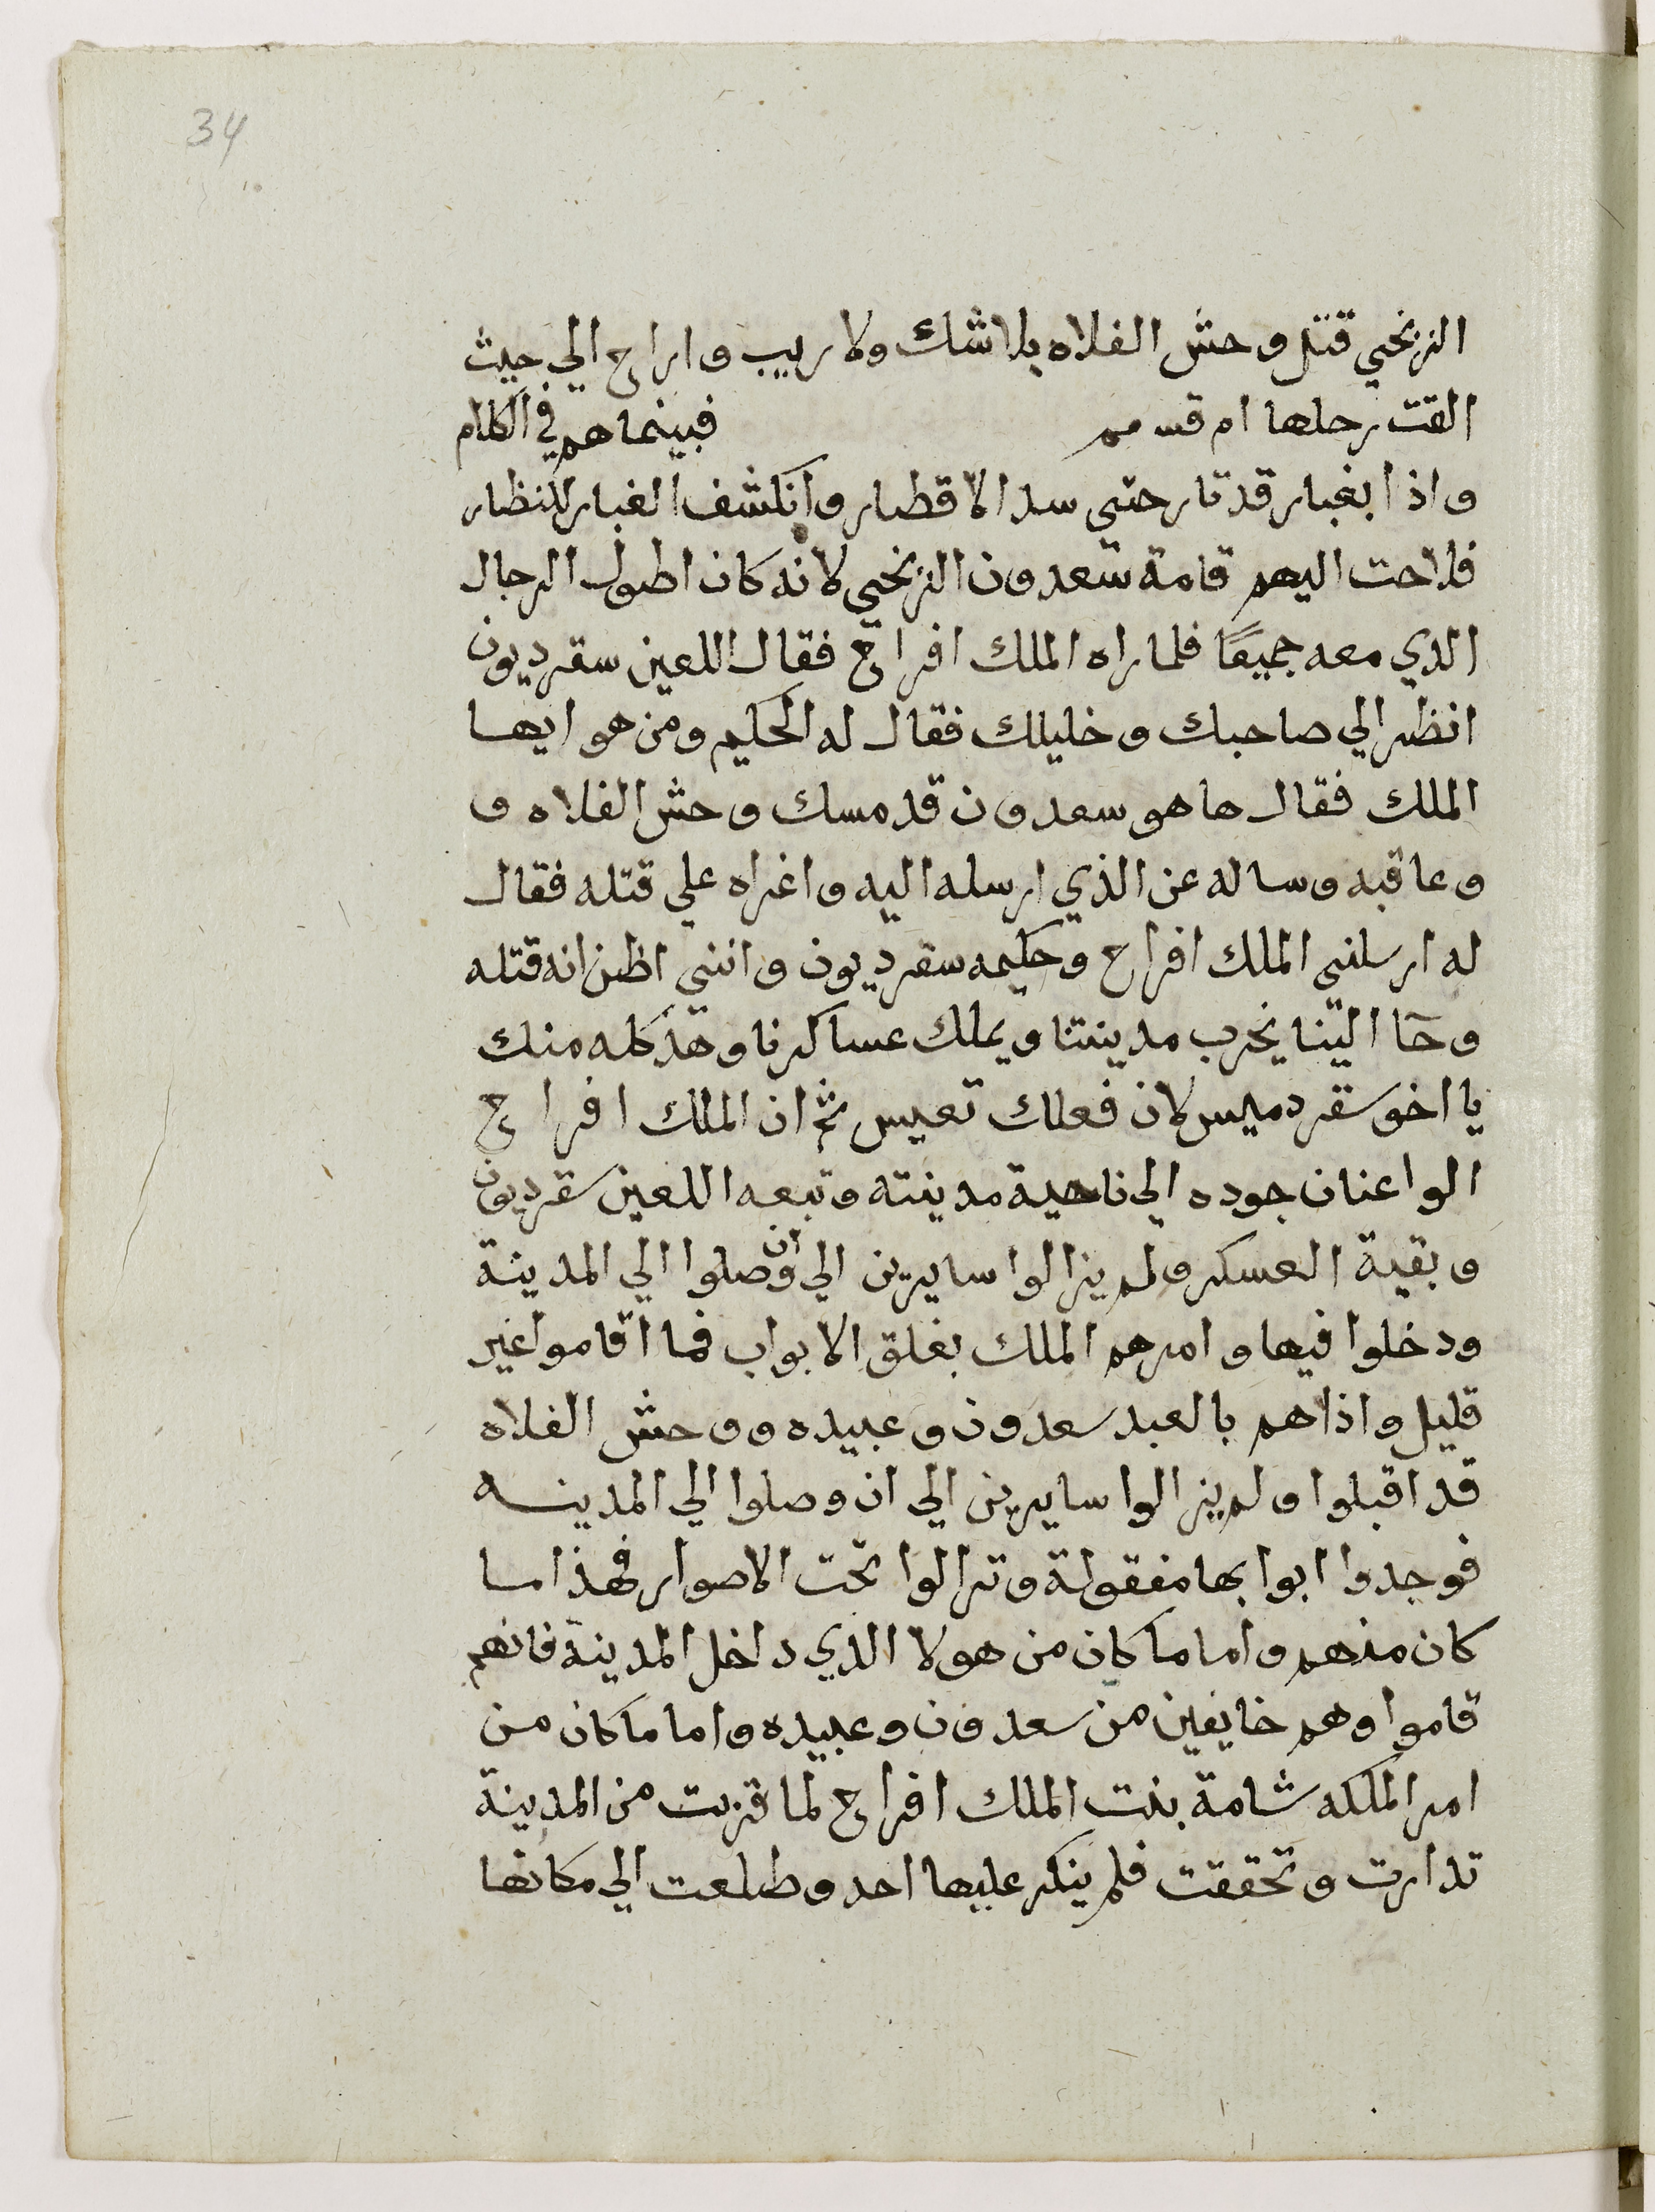 34
الزنجي قتل وحش الفلاه بلا شك ولا ريب واراح الي حيث
القت رحلها ام قسمم فبينما هم في الكلام
واذا بغبار قد تار حتي سد الاقطار وانكشف الغبار للنظار
فلاحت اليهم قامة سعدون الزنجي لانه كان اطول الرجال
الدي معه جميعًا فلما راه الملك افراح فقال اللعين سقرديون
انظر الي صاحبك وخليلك فقال له الحكيم ومن هو ايها
الملك فقال ها هو سعدون قد مسك وحش الفلاه و
وعاقبه وساله عن الذي ارسله اليه واغراه علي قتله فقال
له ارسلني الملك افراح وحكيمه سقرديون وانني اظن انه قتله
وجآ الينا يخرب مدينتنا ويملك عساكرنا وهذ كله منك
يا اخو سقرديس لان فعلك تعيس ثم ان الملك افراح
الوا عنان جوده الي ناحية مدينته وتبعه اللعين سقرديون
وبقية العسكر ولم يزالوا سايرين الي ان وصلوا الي المدينة
ودخلوا فيها وامرهم الملك بغلق الابواب فما اقاموا غير
قليل واذاهم بالعبد سعدون وعبيده ووحش الفلاه
قد اقبلوا ولم يزالوا سايرين الي ان وصلوا الي المدينه
فوجدوا ابوابها مفقولة وترالوا تحت الاصوار فهذا ما
كان منهم واما ما كان من هولا الدي داخل المدينة فانهم
قاموا وهم خايفين من سعدون وعبيده واما ما كان من
امر الملكه شامة بنت الملك افراح لما قربت من المدينة
تدارت وتحققت فلم ينكر عليها احد وطلعت الي مكانها